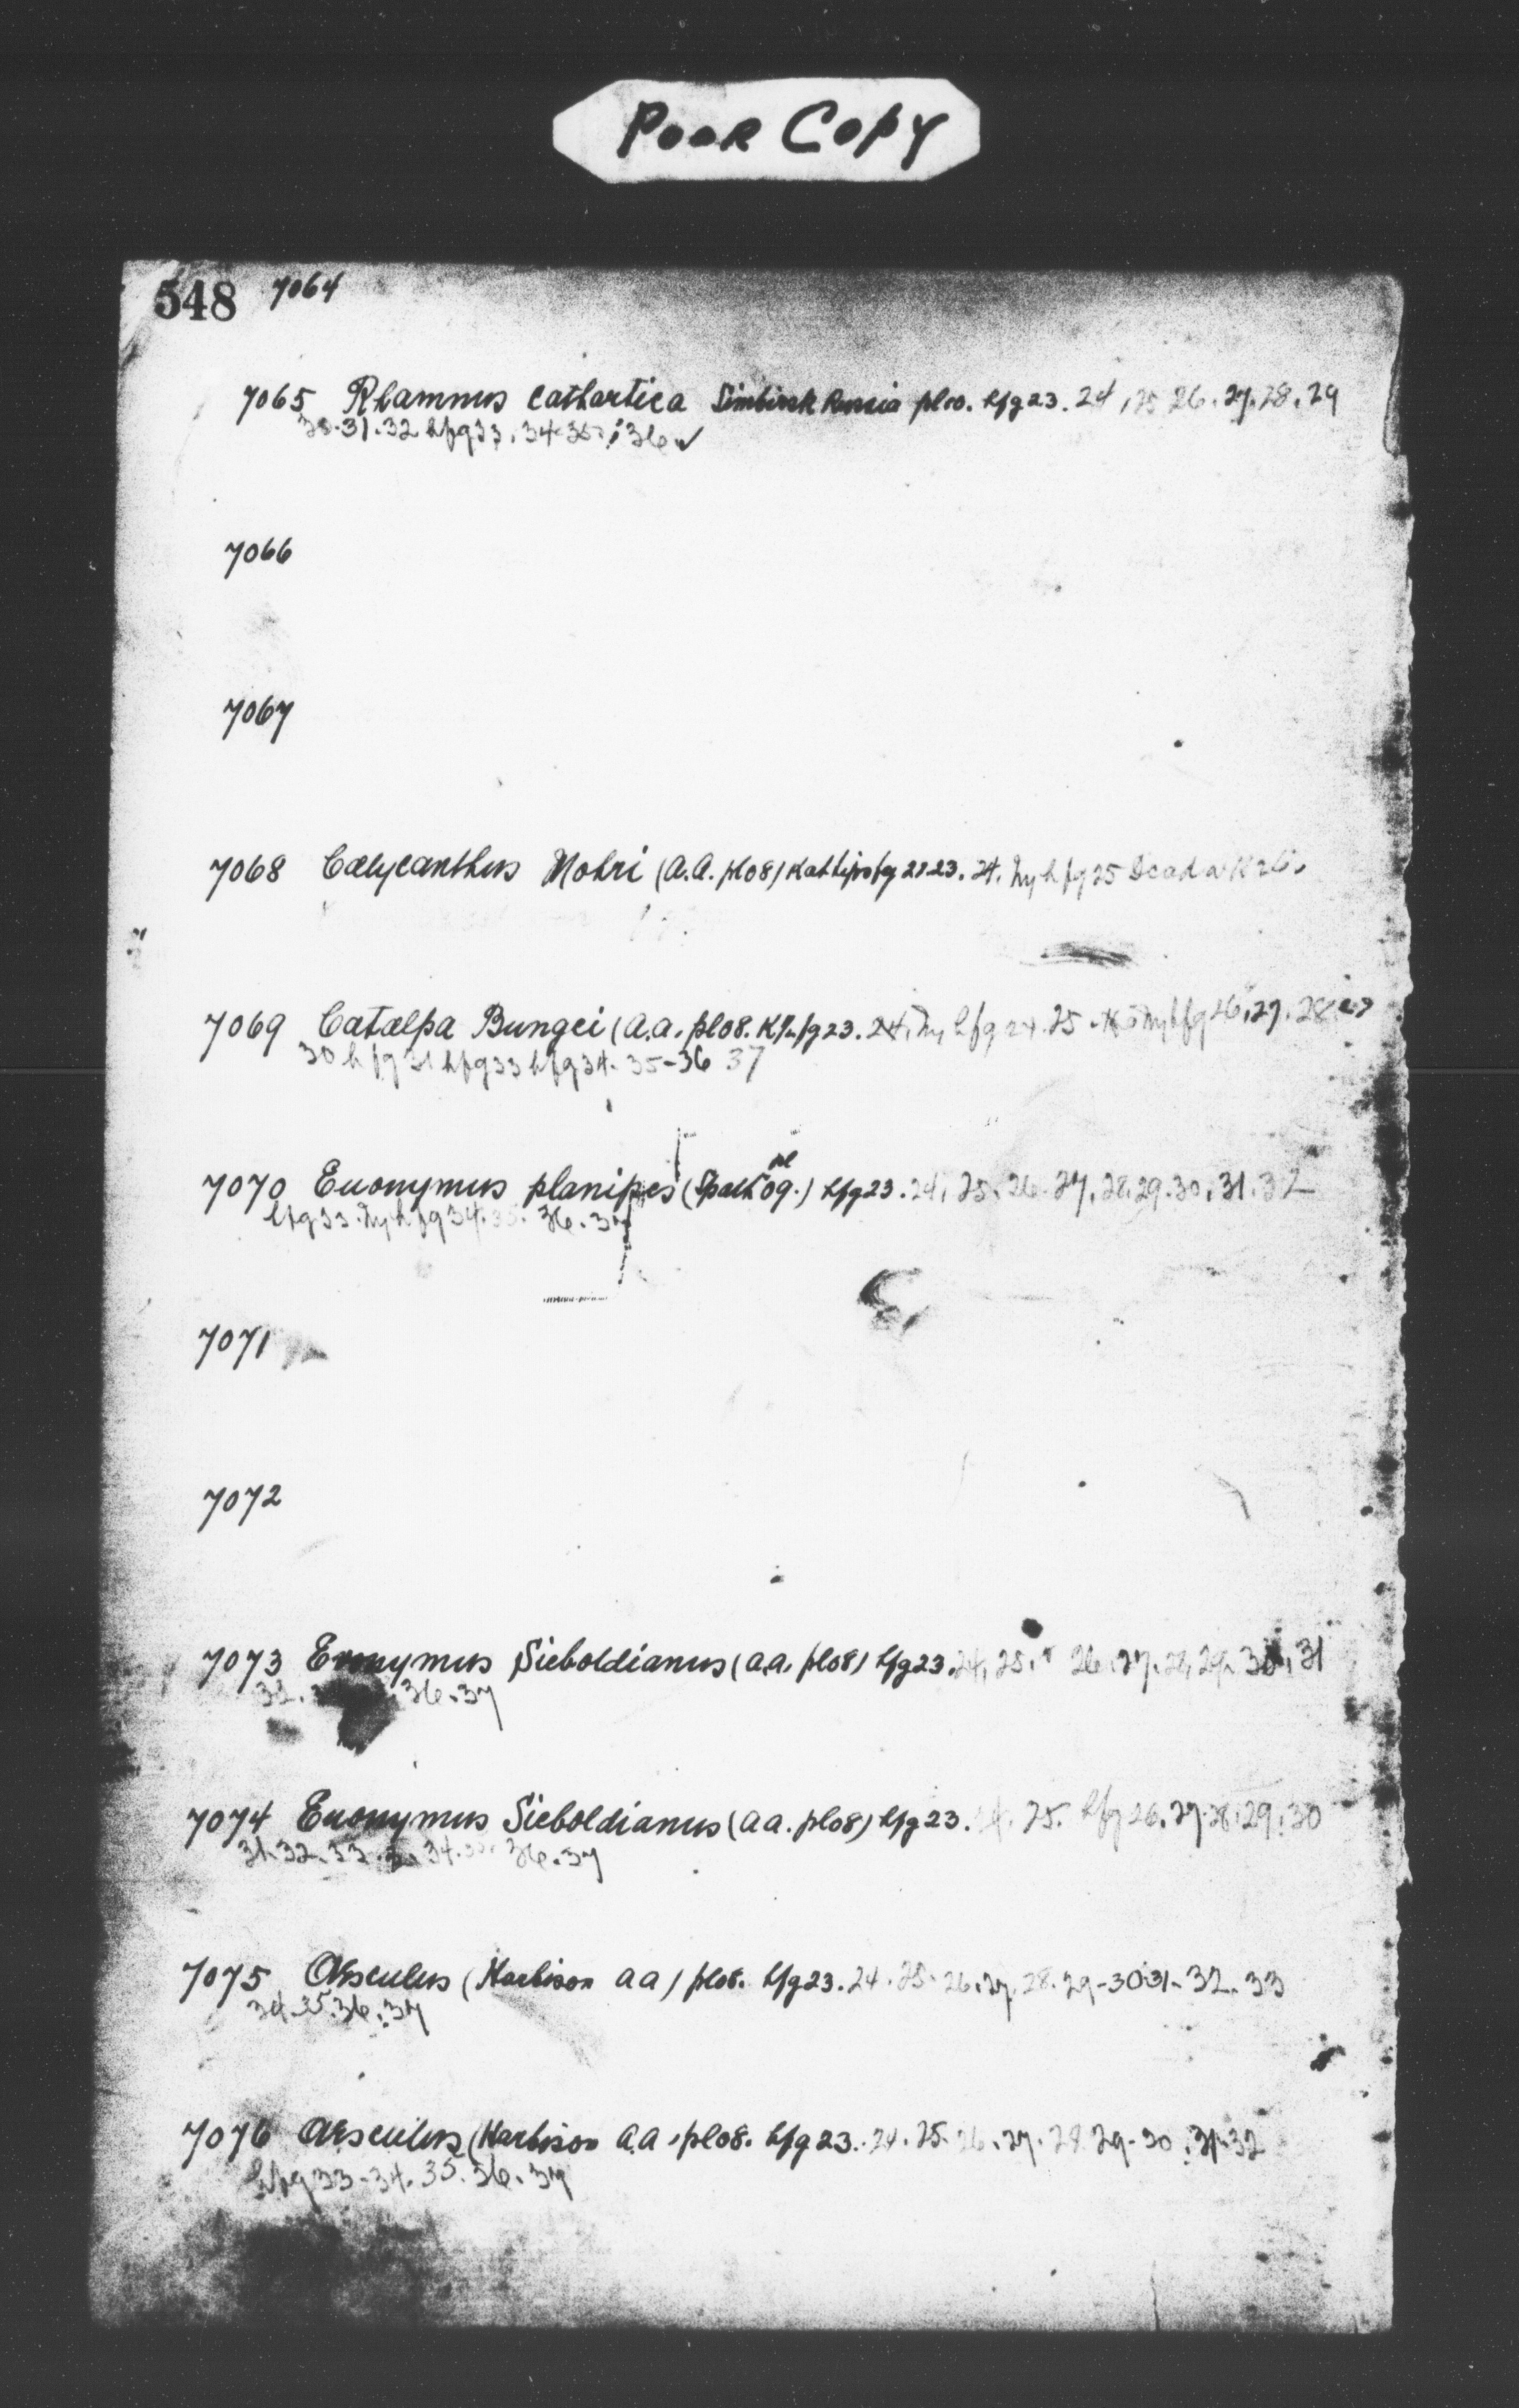 Poor Copy
548 7064
7065 Rhamnus cathartica Simbirsk Russia pl10. hfg23. 24, 25 26. 27. 28. 29
30. 31. 32 hfg33. 34. 35. 36 ✓
7066
7067
7068 Calycanthus Mohri (A.A. pl08) 23. 24. hfg25 Dead
7069 Catalpa Bungei (A.A. pl08. fg23. 24. hfg 25 26. 27. 28.
30 hfg31 hfg33 hfg34. 35-36 37
7070 Euonymus planipes (Spaeth pl 09.) hfg23. 24, 25. 26. 27. 28. 29. 30. 31. 32
hfg33. hfg34. 35. 36. 37
7071
7072
7073 Euonymus Sieboldianus (A.A. pl08) hfg23. 24, 25. 26. 27. 28. 29. 30, 31
32. 36. 37
7074 Euonymus Sieboldianus (A A. pl08) hfg23. 25. hfg26. 27. 28. 29. 30
31. 32. 33. 34. 35. 36. 37
7075 Aesculus (Harbison A A) pl08. hfg23. 24. 25. 26. 27. 28. 29-30. 31-32. 33
34. 35. 36. 37
7076 Aesculus (Harbison A.A. pl08. hfg23. 24. 25. 26. 27. 28. 29-30. 31-32
hfg33-34. 35. 36. 37